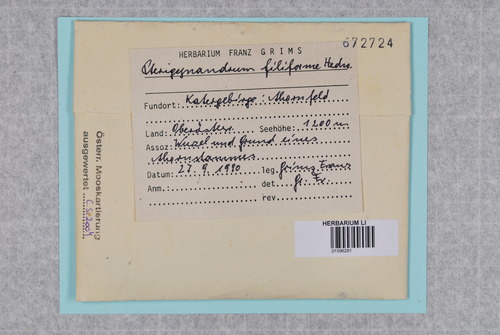 672724
HERBARIUM FRANZ GRIMS
Pterigynandrum filiforme Hedw.
Fundort: Katergebirge: Ahornfeld
Land: Oberösterr. Seehöhe: 1200 m
Assoz: Wurzel und Grund eines
Ahornstammes
Datum: 27. 9. 1990 leg. Grims Franz
Anm.: det. Gr. Fr.
rev.
Österr. Mooskartierung
ausgewertet
HERBARIUM LI
01596281